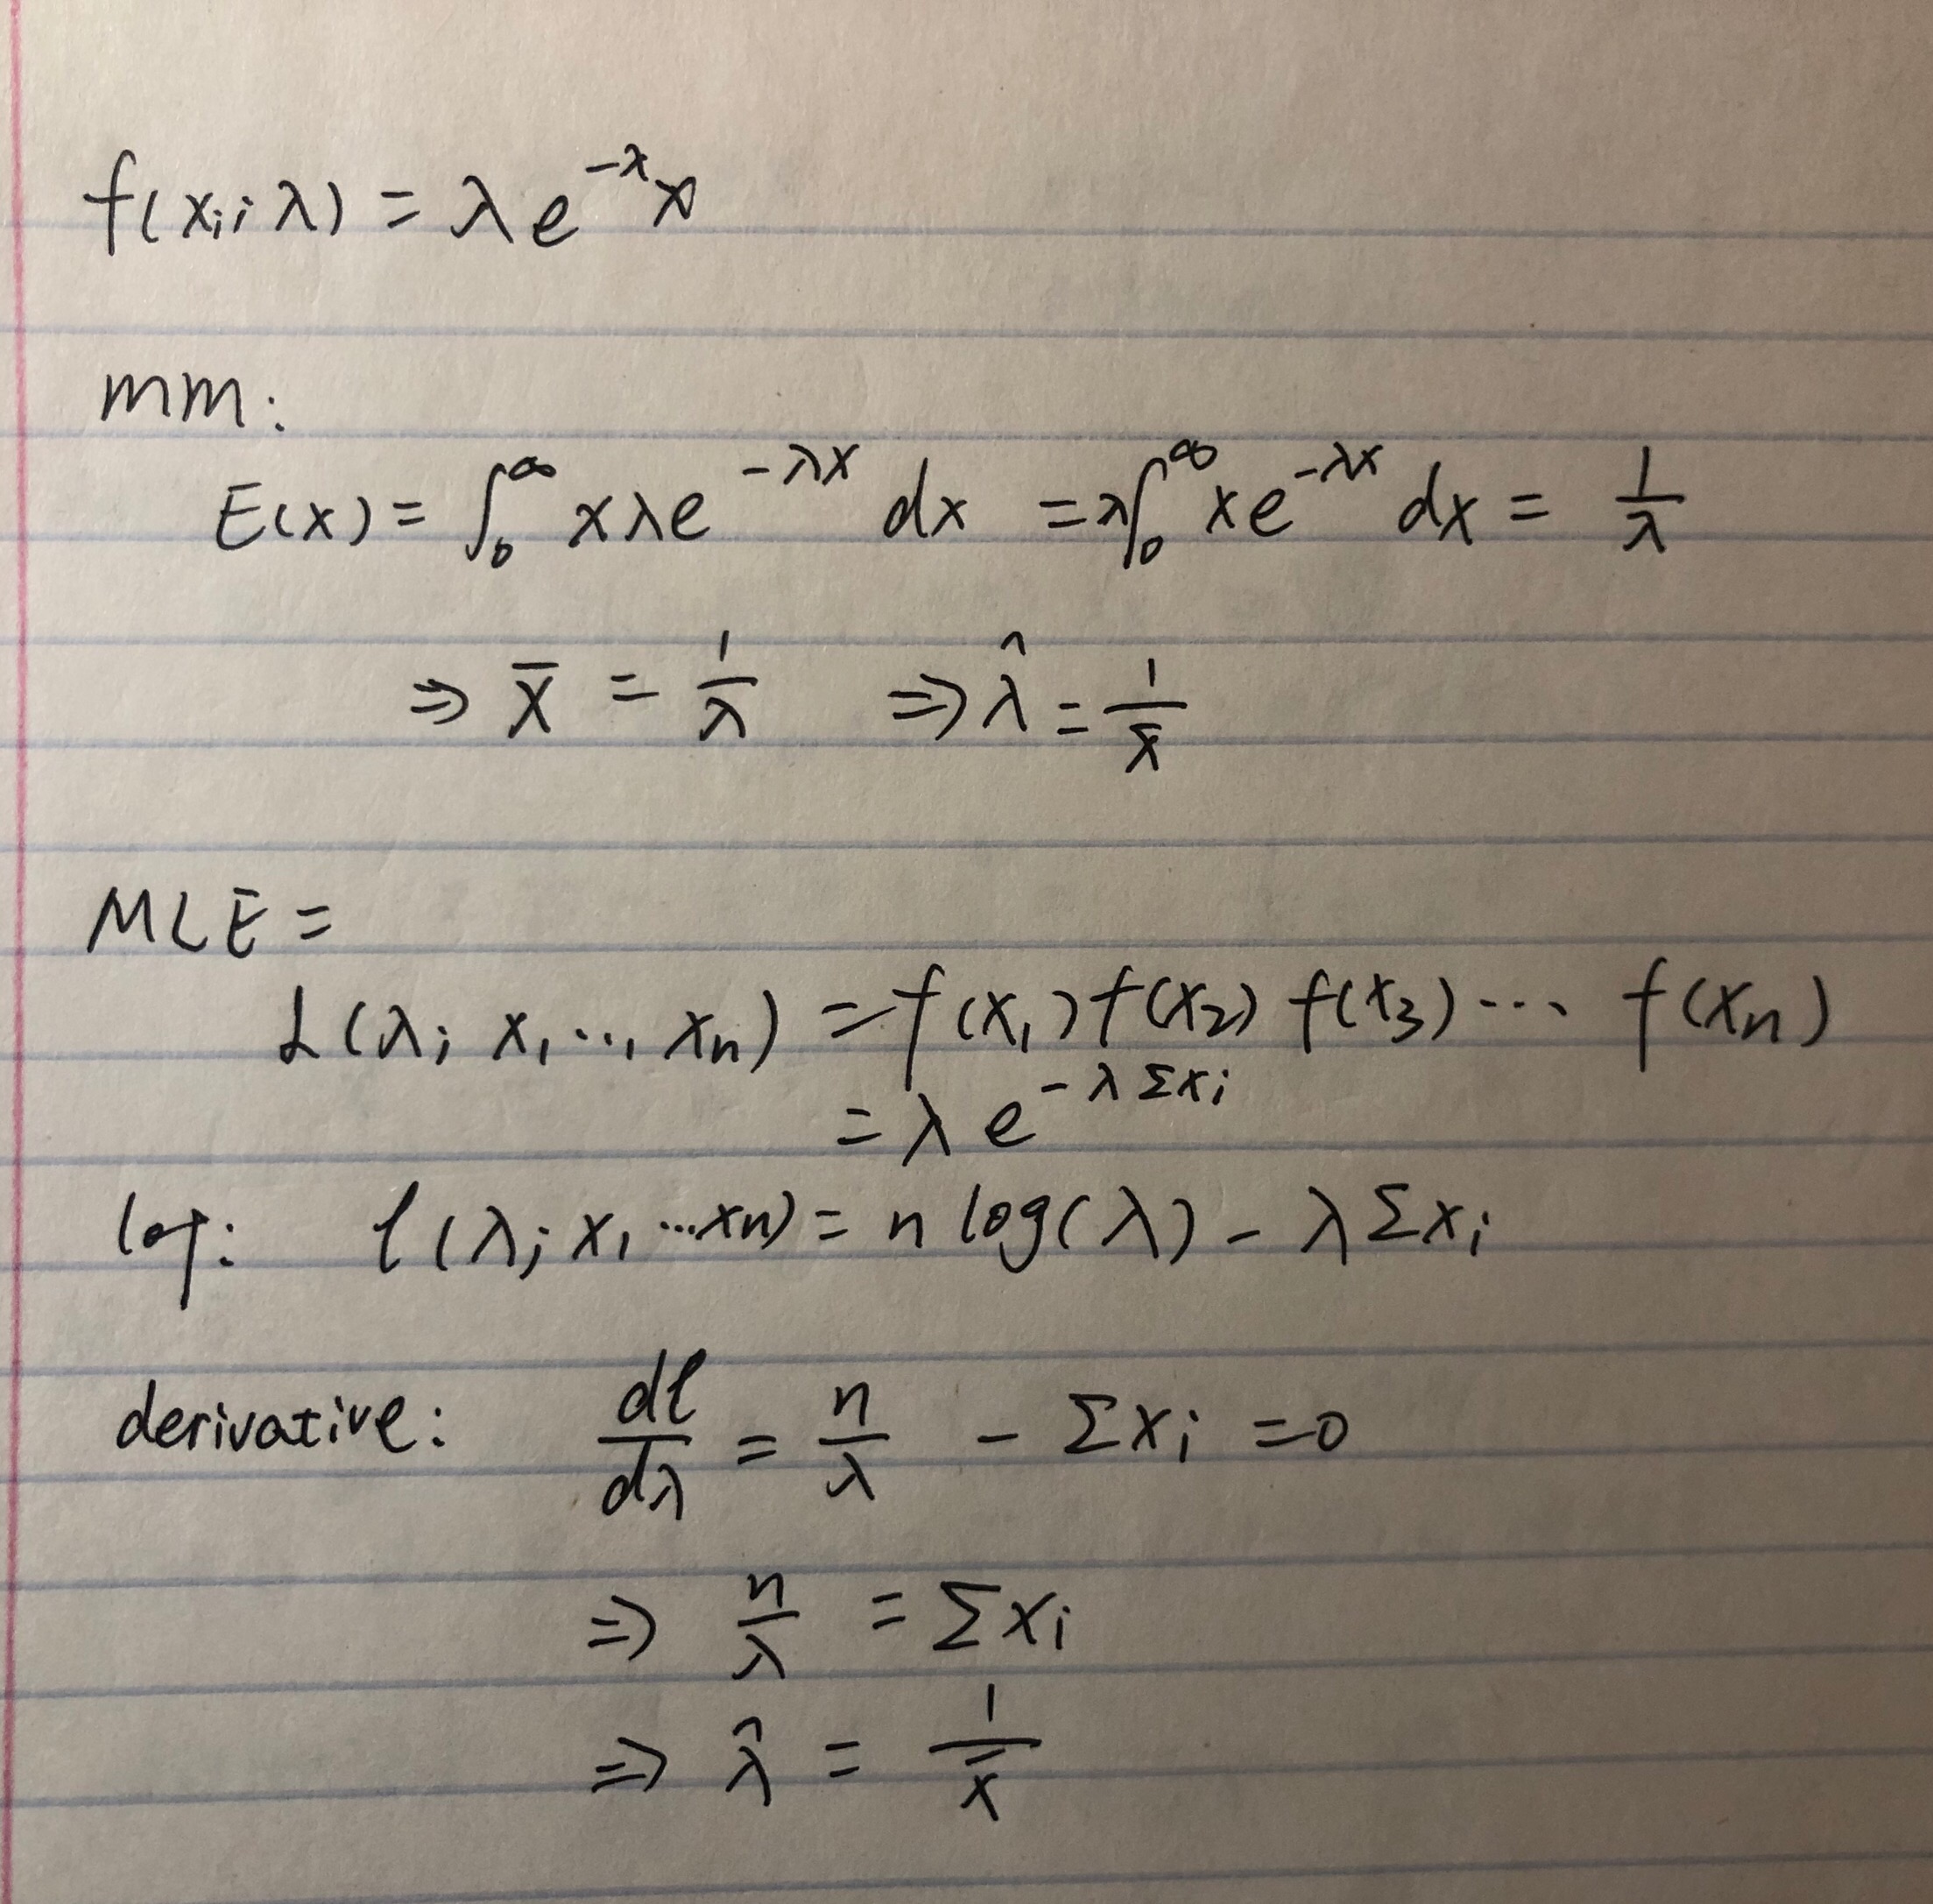 f(xᵢ; λ) = λ e^{-λ} x
mm:
E(x) = ∫₀^∞ xλe^{-λx} dx = λ∫₀^∞ xe^{-λx} dx = 1/λ
⇒ x̄ = 1/λ ⇒ λ̂ = 1/x̄
MLE =
L(λ; x₁ ..., xₙ) = f(x₁) f(x₂) f(x₃) ... f(xₙ)
= λ e^{-λ Σxᵢ}
log: ℓ(λ; x₁ ... xn) = n log(λ) - λ Σxᵢ
derivative: dℓ/dλ = n/λ - Σxᵢ = 0
⇒ n/λ = Σxᵢ
⇒ λ̂ = 1/x̄